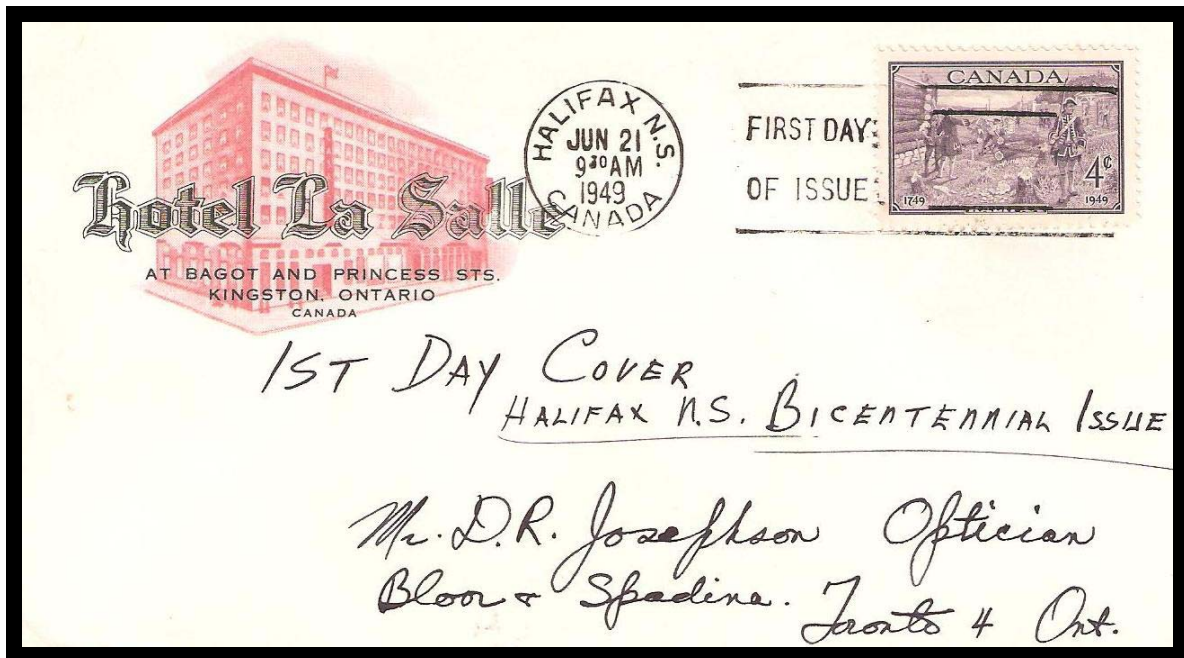 Hotel La Salle
AT BAGOT AND PRINCESS STS.
KINGSTON, ONTARIO
CANADA
HALIFAX N.S.
JUN 21
9 30 AM
1949
CANADA
FIRST DAY
OF ISSUE
CANADA
4¢
1749 1949
1ST DAY COVER
HALIFAX N.S. BICENTENNIAL ISSUE
Mr. D.R. Josephson Optician
Bloor & Spadina. Toronto 4 Ont.